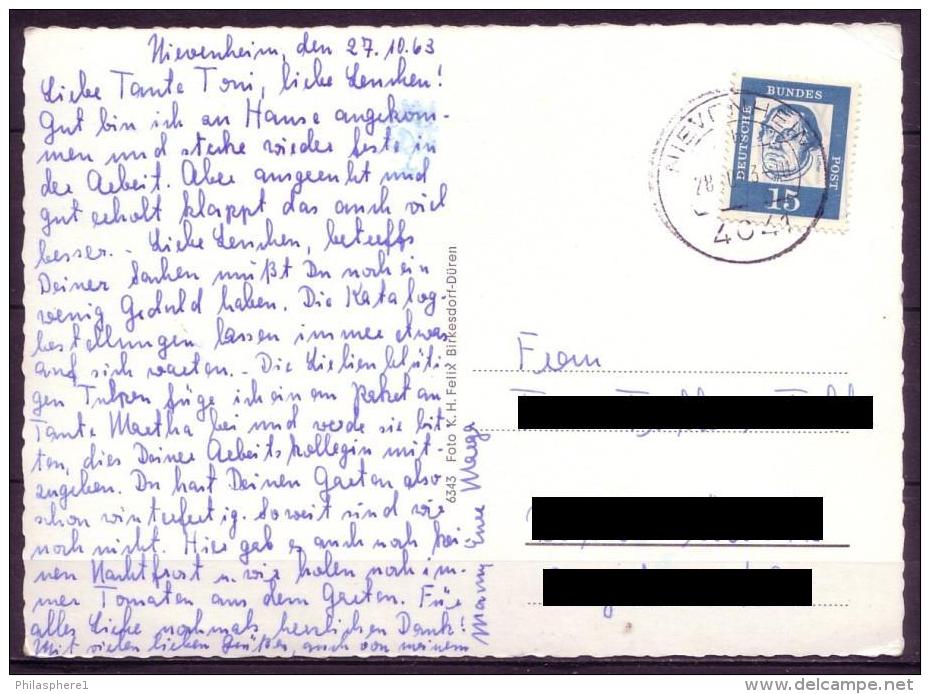 Nievenheim, den 27.10.63
Liebe Tante Toni, liebe Lenchen!
Gut bin ich zu Hause angekom-
men und stecke wieder feste in
der Arbeit. Aber ausgeruht und
gut erholt klappt das auch viel
besser. - Liebe Lenchen, betreffs
Deiner Sachen mußt Du noch ein
wenig Geduld haben. Die Katalog-
bestellungen lassen immer etwas
auf sich warten. - Die Lilienblüti-
gen Tulpen füge ich einem Paket an
Tante Martha bei und werde sie bit-
ten, dies Deiner Arbeitskollegin mit-
zugeben. Du hast Deinen Garten also
schon winterfertig. Soweit sind wir
noch nicht. Hier gab es auch noch kei-
nen Nachtfrost u. wir holen noch im-
mer Tomaten aus dem Garten. Für
alles Liebe nochmals herzlichen Dank!
Mit vielen lieben Grüßen, auch von meinem
Mann, Eure Marga
6343 Foto K. H. Felix Birkesdorf-Düren
NIEVENHEIM
28
4041
DEUTSCHE
BUNDES
POST
15
Frau
Philasphere1
www.delcampe.net